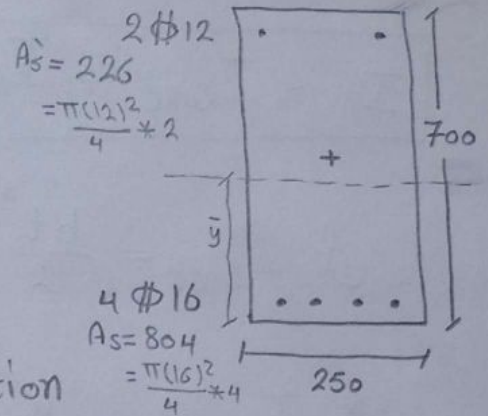 2 ⌽12
As' = 226
= π(12)²/4 * 2
700
+
ȳ
4 ⌽16
As = 804
= π(16)²/4 * 4
250